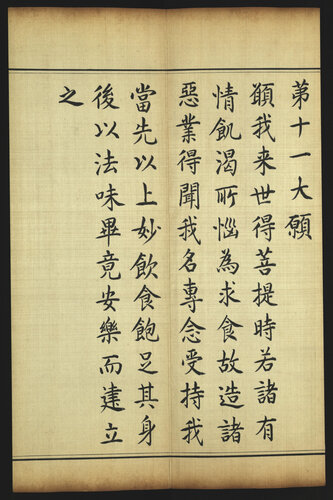 第十一大願
願我来世得菩提時若諸有
情飢渴所惱為求食故造諸
惡業得聞我名專念受持我
當先以上妙飲食飽足其身
後以法味畢竟安樂而建立
之